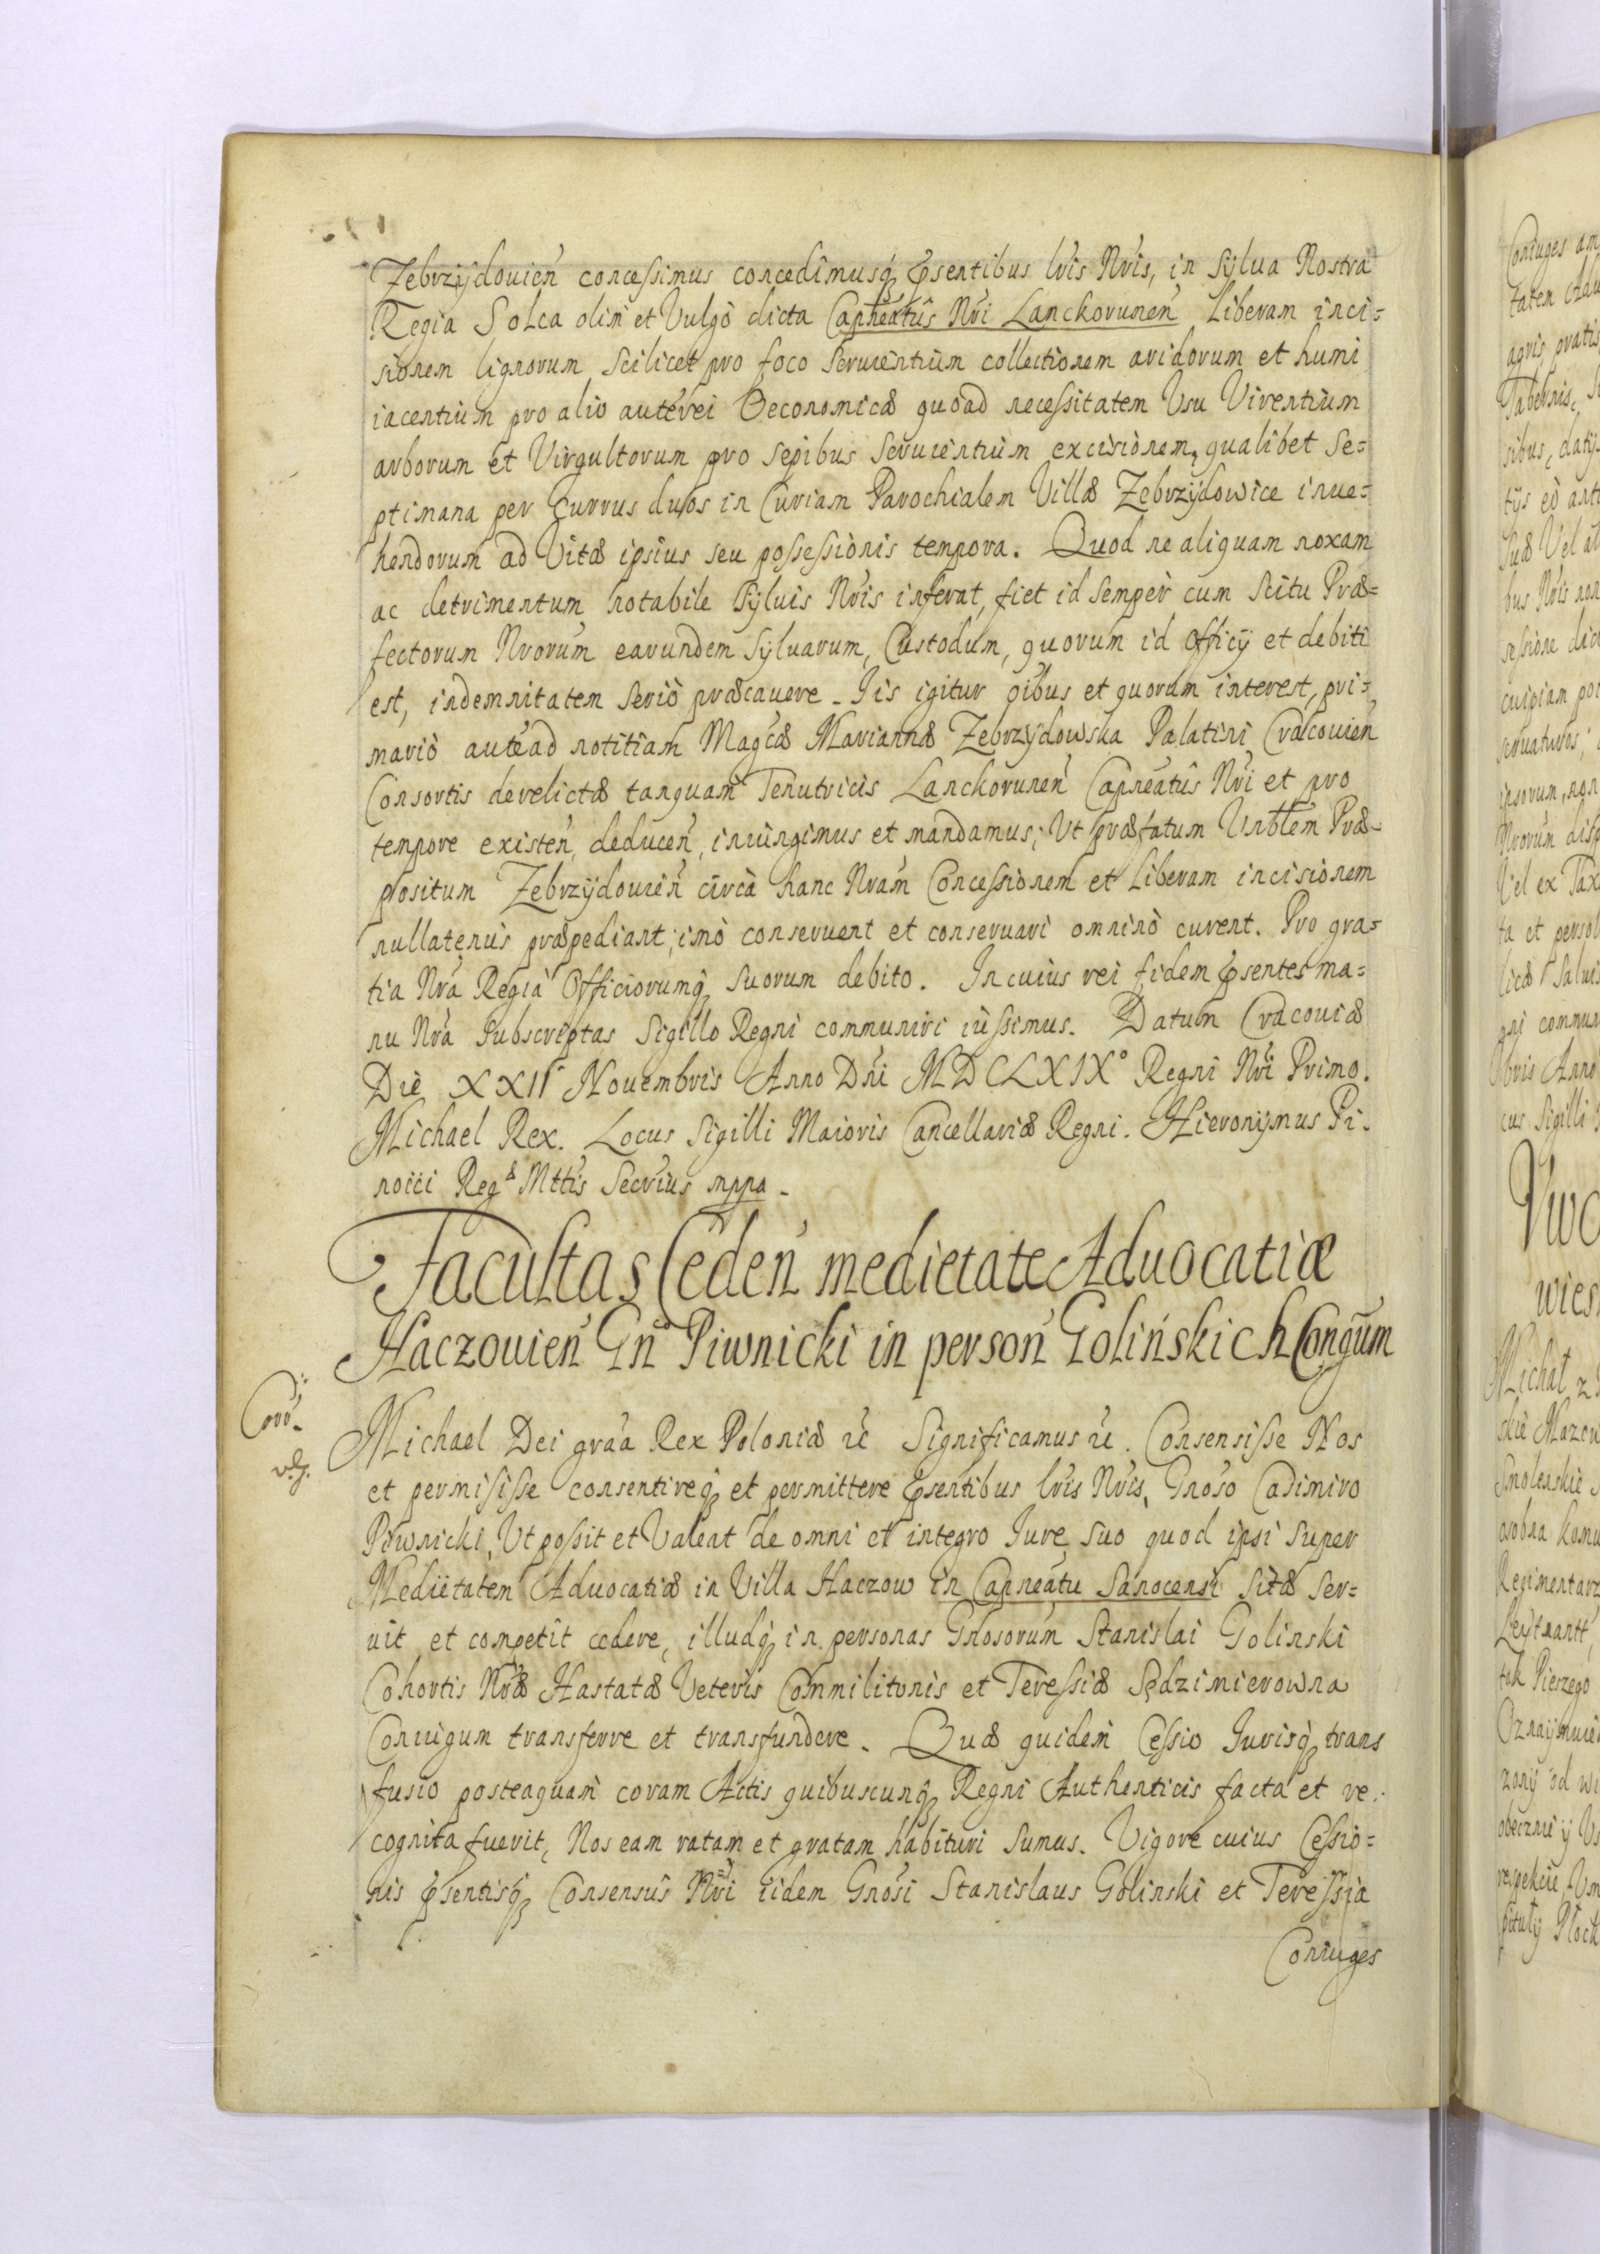 Zebrzÿdouień concessimus concedimusq́ꝫ p̄sentibus lr̃is Nr̃is, in Sylua Nostra
Regia Solca olim et Vulgò dicta Capneatûs Nr̃i Lanckorunen̄ liberam inci=
sionem lignorum scilicet pro foco seruientium collectionem aridorum et humi
iacentium pro alio aute᷃ rei Oeconomicæ quoad necessitatem Vsu Virentium
arborum et Virgultorum pro sepibus seruientium excisionem, qualibet Se=
ptimana per Currus duos in Curiam Parochialem Villæ Zebrzÿdowice inue=
hendorum ad Vitæ ipsius seu possessionis tempora. Quod ne aliquam noxam
ac detrimentum notabile Syluis Nr̃is inferat, fiet id semper cum Scitu Præ=
fectorum Nr̃orum earundem Syluarum, Custodum, quorum id Officÿ et debiti
est, indemnitatem seriò præcauere. Iis igitur oĩbus et quorum interest, pri=
mariò aute᷃ ad notitiam Magc̃æ Mariannæ Zebrzÿdowska Palatini Cracouien̄
Consortis derelictæ tanquam Tenutricis Lanckorunen̄ Capneatûs Nr̃i et pro
tempore existen̄, deducen̄, iniungimus et mandamus, Vt præfatum Vnblem Præ=
positum Zebrzÿdouien̄ circà hanc Nr̃am Concessionem et liberam incisionem
nullatenus præpediant, imò conseruent et conseruari omninò curent. Pro gra=
tia Nr̃a Regia Officiorumq́ꝫ suorum debito. In cuius rei fidem p̄sentes ma=
nu Nr̃a Subscriptas Sigillo Regni communiri iussimus. Datum Cracouiæ
Die XXII Nouembris Anno Dñi MDCLXIX° Regni Nr̃i Primo.
Michael Rex. Locus Sigilli Maioris Cancellariæ Regni. Hieronÿmus Pi=
noici Regæ Mttis Secr̃ius mppa.
Facultas Ceden̄ medietate Aduocatiæ
Haczouien̄ Gn̄o Piwnicki in person̄ Golińskich Cong̃um
Michael Dei gr̃a Rex Poloniæ ꝛc Significamus ꝛc. Consensisse Nos
et permisisse consentireq́ꝫ et permittere p̄sentibus lr̃is Nr̃is, Gnoso Casimiro
Piwnicki, Vt possit et Valeat de omni et integro Iure suo quod ipsi super
Medietatem Aduocatiæ in Villa Haczow in Capneatu Sanocensi sitæ ser=
uit et competit cedere, illudq́ꝫ in personas Gnosorum Stanislai Golinski
Cohortis Nr̃æ Hastatæ Veteris Commilitonis et Teressiæ Sędzimierowna
Coniugum transferre et transfundere. Quæ quidem Cessio Iurisq́ꝫ trans
fusio posteaquam coram Actis quibuscunq́ꝫ Regni Authenticis facta et re=
cognita fuerit, Nos eam ratam et gratam habituri sumus. Vigore cuius Cessio=
nis p̄sentisq́ꝫ Consensus Nr̃i iidem Gnosi Stanislaus Golinski et Teressia
Coniuges